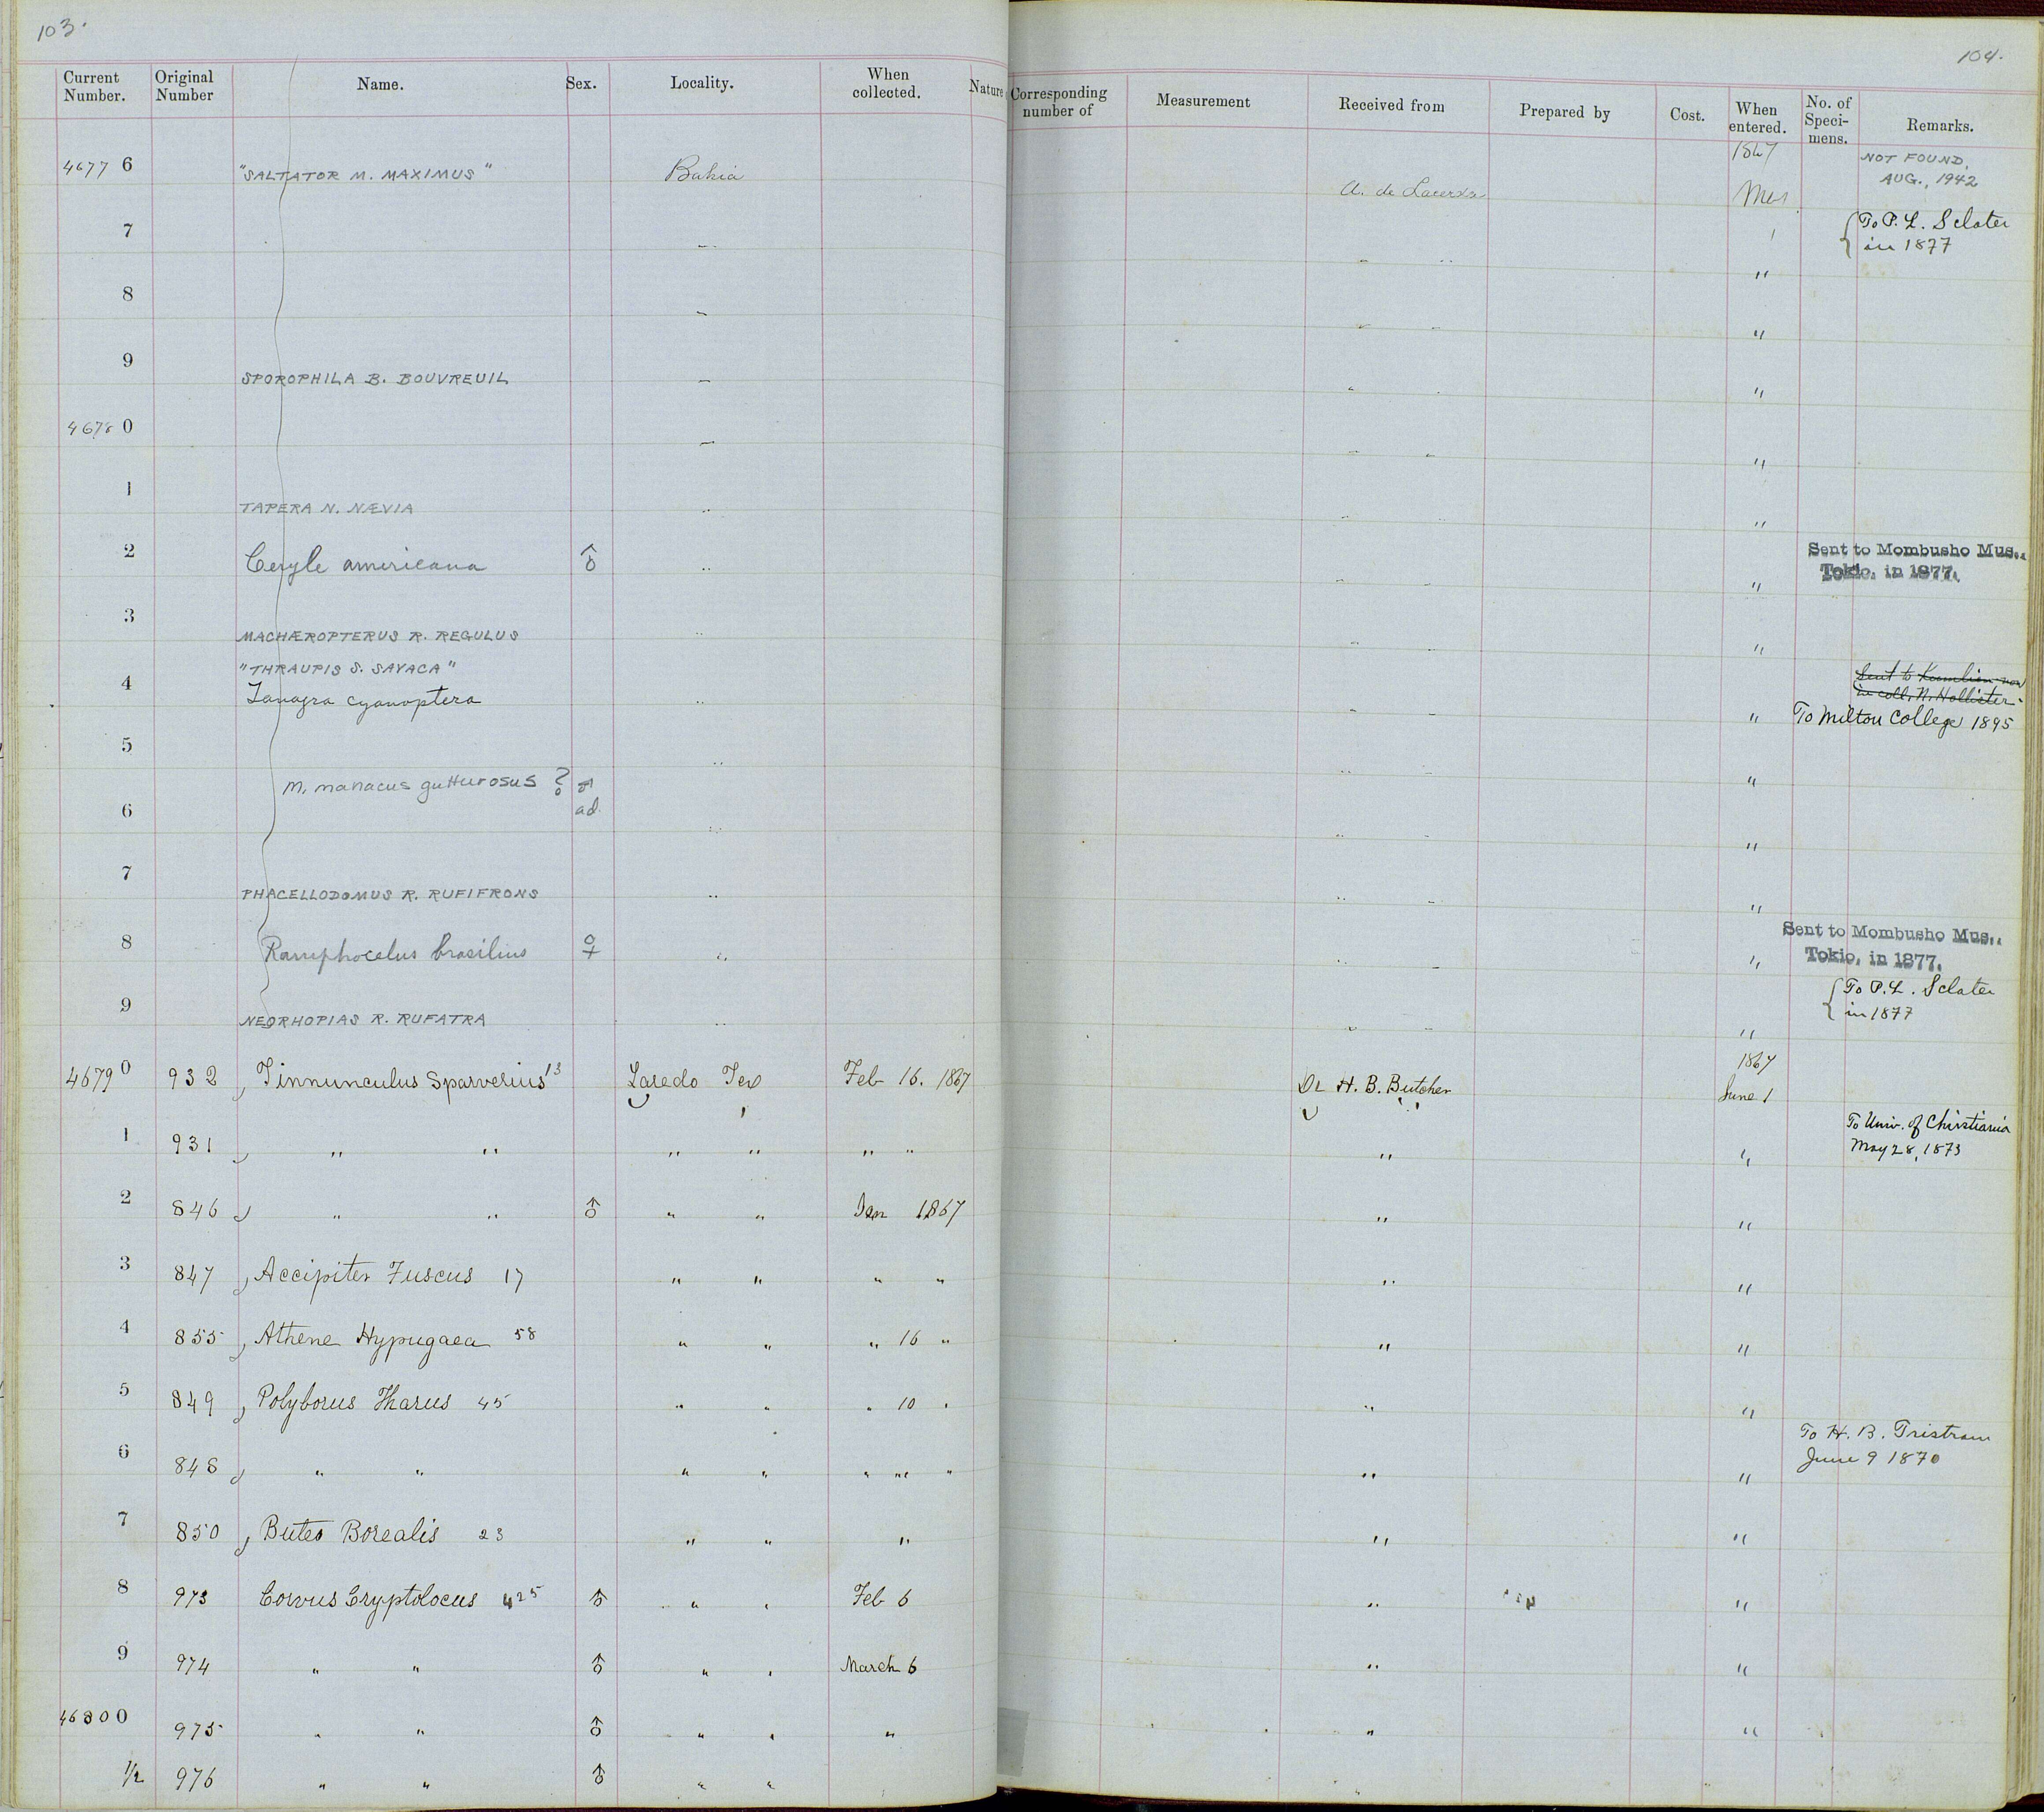 103.
104.
Current Number. Original Number Name. Sex. Locality. When collected. Nature Corresponding number of Measurement Received from Prepared by Cost. When entered. No. of Speci-mens. Remarks.
4677 6 "SALTATOR M. MAXIMUS" Bahia A. de Lacerda 1867 NOT FOUND, AUG., 1942
7 — " " { To P. L. Sclater in 1877
8 — " " "
9 SPOROPHILA B. BOUVREUIL — " " "
4678 0 — " " "
1 TAPERA N. NÆVIA " " " "
2 Ceryle americana ♂ " " " " Sent to Mombusho Mus., Tokio, in 1877.
3 MACHÆROPTERUS R. REGULUS " " " "
"THRAUPIS S. SAYACA"
4 Tanagra cyanoptera " " " " Sent to Kumlien now in coll. N. Hollister
To Milton College 1895
5 " " " "
M. manacus gutturosus ? ♂ ad.
6 " " " "
7 PHACELLODOMUS R. RUFIFRONS " " " "
8 Ramphocelus brasilius ♀ " " " " Sent to Mombusho Mus., Tokio, in 1877.
9 NEORHOPIAS R. RUFATRA " " " " { To P. L. Sclater in 1877
4679 0 932 Tinnunculus Sparverius 13 Laredo Tex Feb 16. 1867 Dr H. B. Butcher 1867 June 1
1 931 " " " " " " " " To Univ. of Christiania May 28, 1873
2 846 " " ♂ " " Jan 1867 " "
3 847 Accipiter Fuscus 17 " " " " " "
4 855 Athene Hypugaea 58 " " " 16 " " "
5 849 Polyborus Tharus 45 " " " 10 " " "
6 848 " " " " " " " " " To H. B. Tristram June 9 1870
7 850 Buteo Borealis 23 " " " " "
8 973 Corvus Cryptolocus 425 ♂ " " Feb 6 " "
9 974 " " ♂ " " March 6 " "
4680 0 975 " " ♂ " " " " "
1/2 976 " " ♂ " "